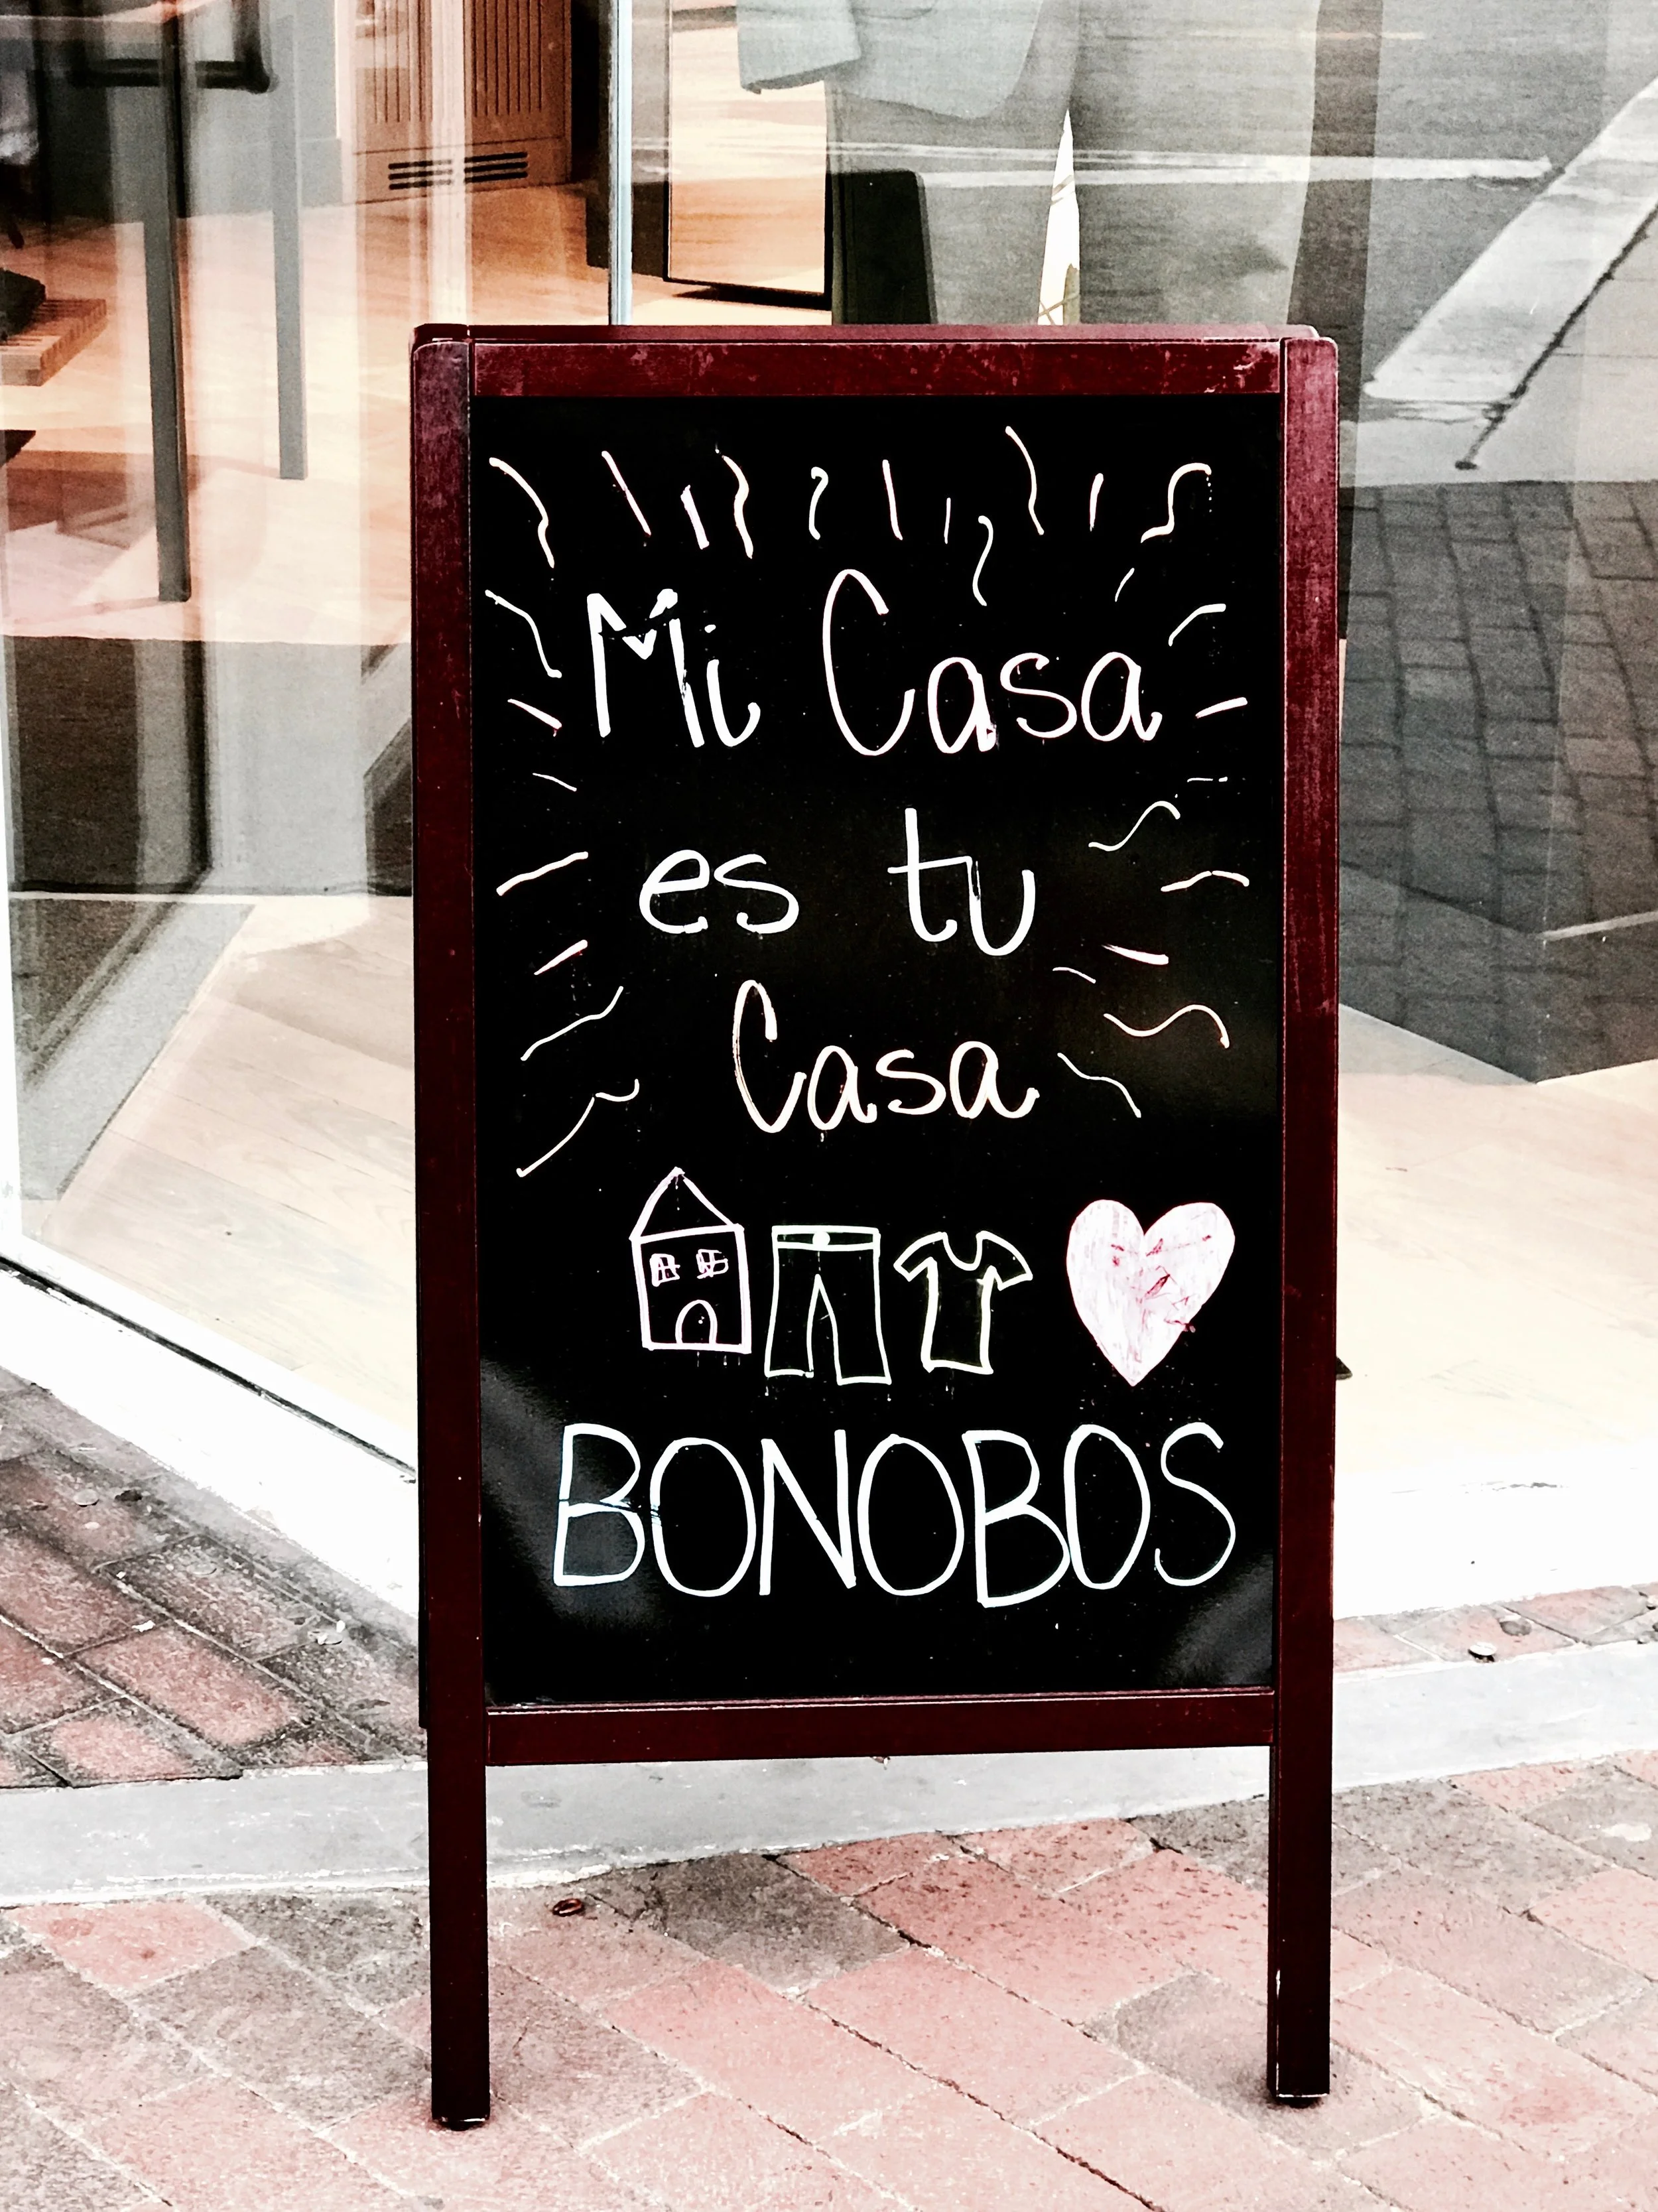 Mi Casa
es tu
Casa
BONOBOS